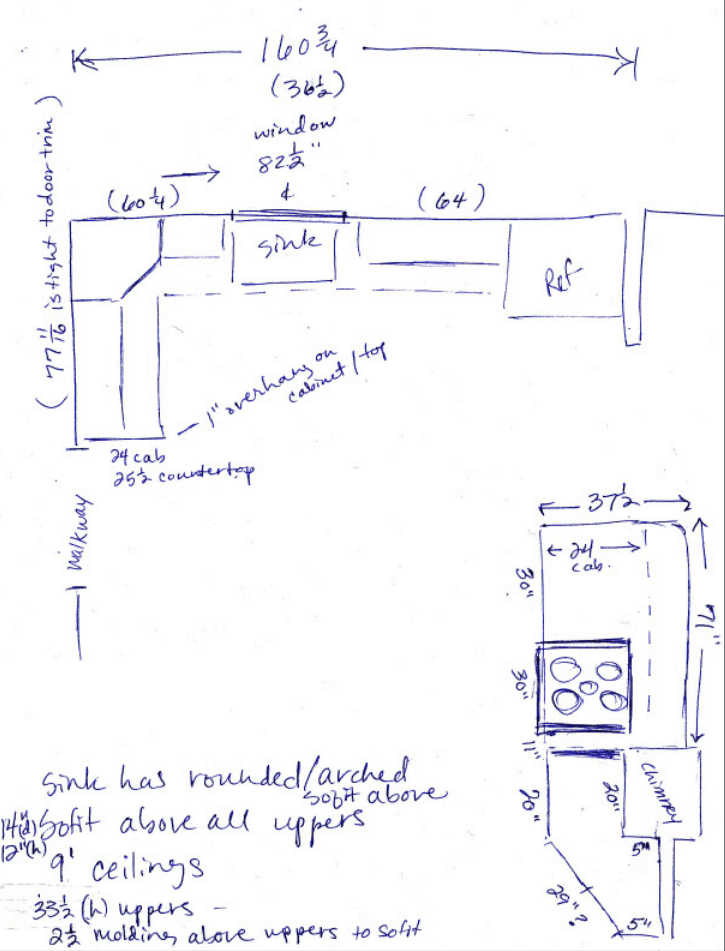 160 3/4
(36 1/2)
window
82 1/2"
(60 1/4)
¢
(64)
(77 11/16 is tight to door trim)
sink
Ref
1" overhang on
cabinet/top
24 cab
25 1/2 countertop
walkway
37 1/2
24
cab.
30"
71"
30"
11"
20"
20"
chimney
5"
29"?
5"
sink has rounded/arched
sofit above
14"(d) Sofit above all uppers
12"(h)
9' ceilings
33 1/2 (h) uppers -
2 1/2 molding above uppers to sofit